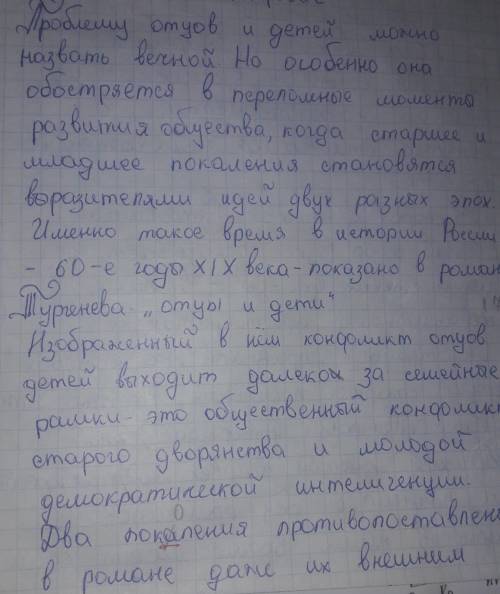 Проблему отцов и детей можно
назвать вечной Но особенно она
обостряется в переломные моменты
развития общества, когда старшее и
младшее покаления становятся
выразителями идей двух разных эпох.
Именно такое время в истории России
- 60-е годы XIX века - показано в роман
Тургенева „отцы и дети"
Изображенный в нём конфликт отцов
детей выходит далекой за семейные
рамки - это общественный конфликт
старого дворянства и молодой
демократической интелигенции.
О
Два покаления противопоставлен
в романе даже их внешним